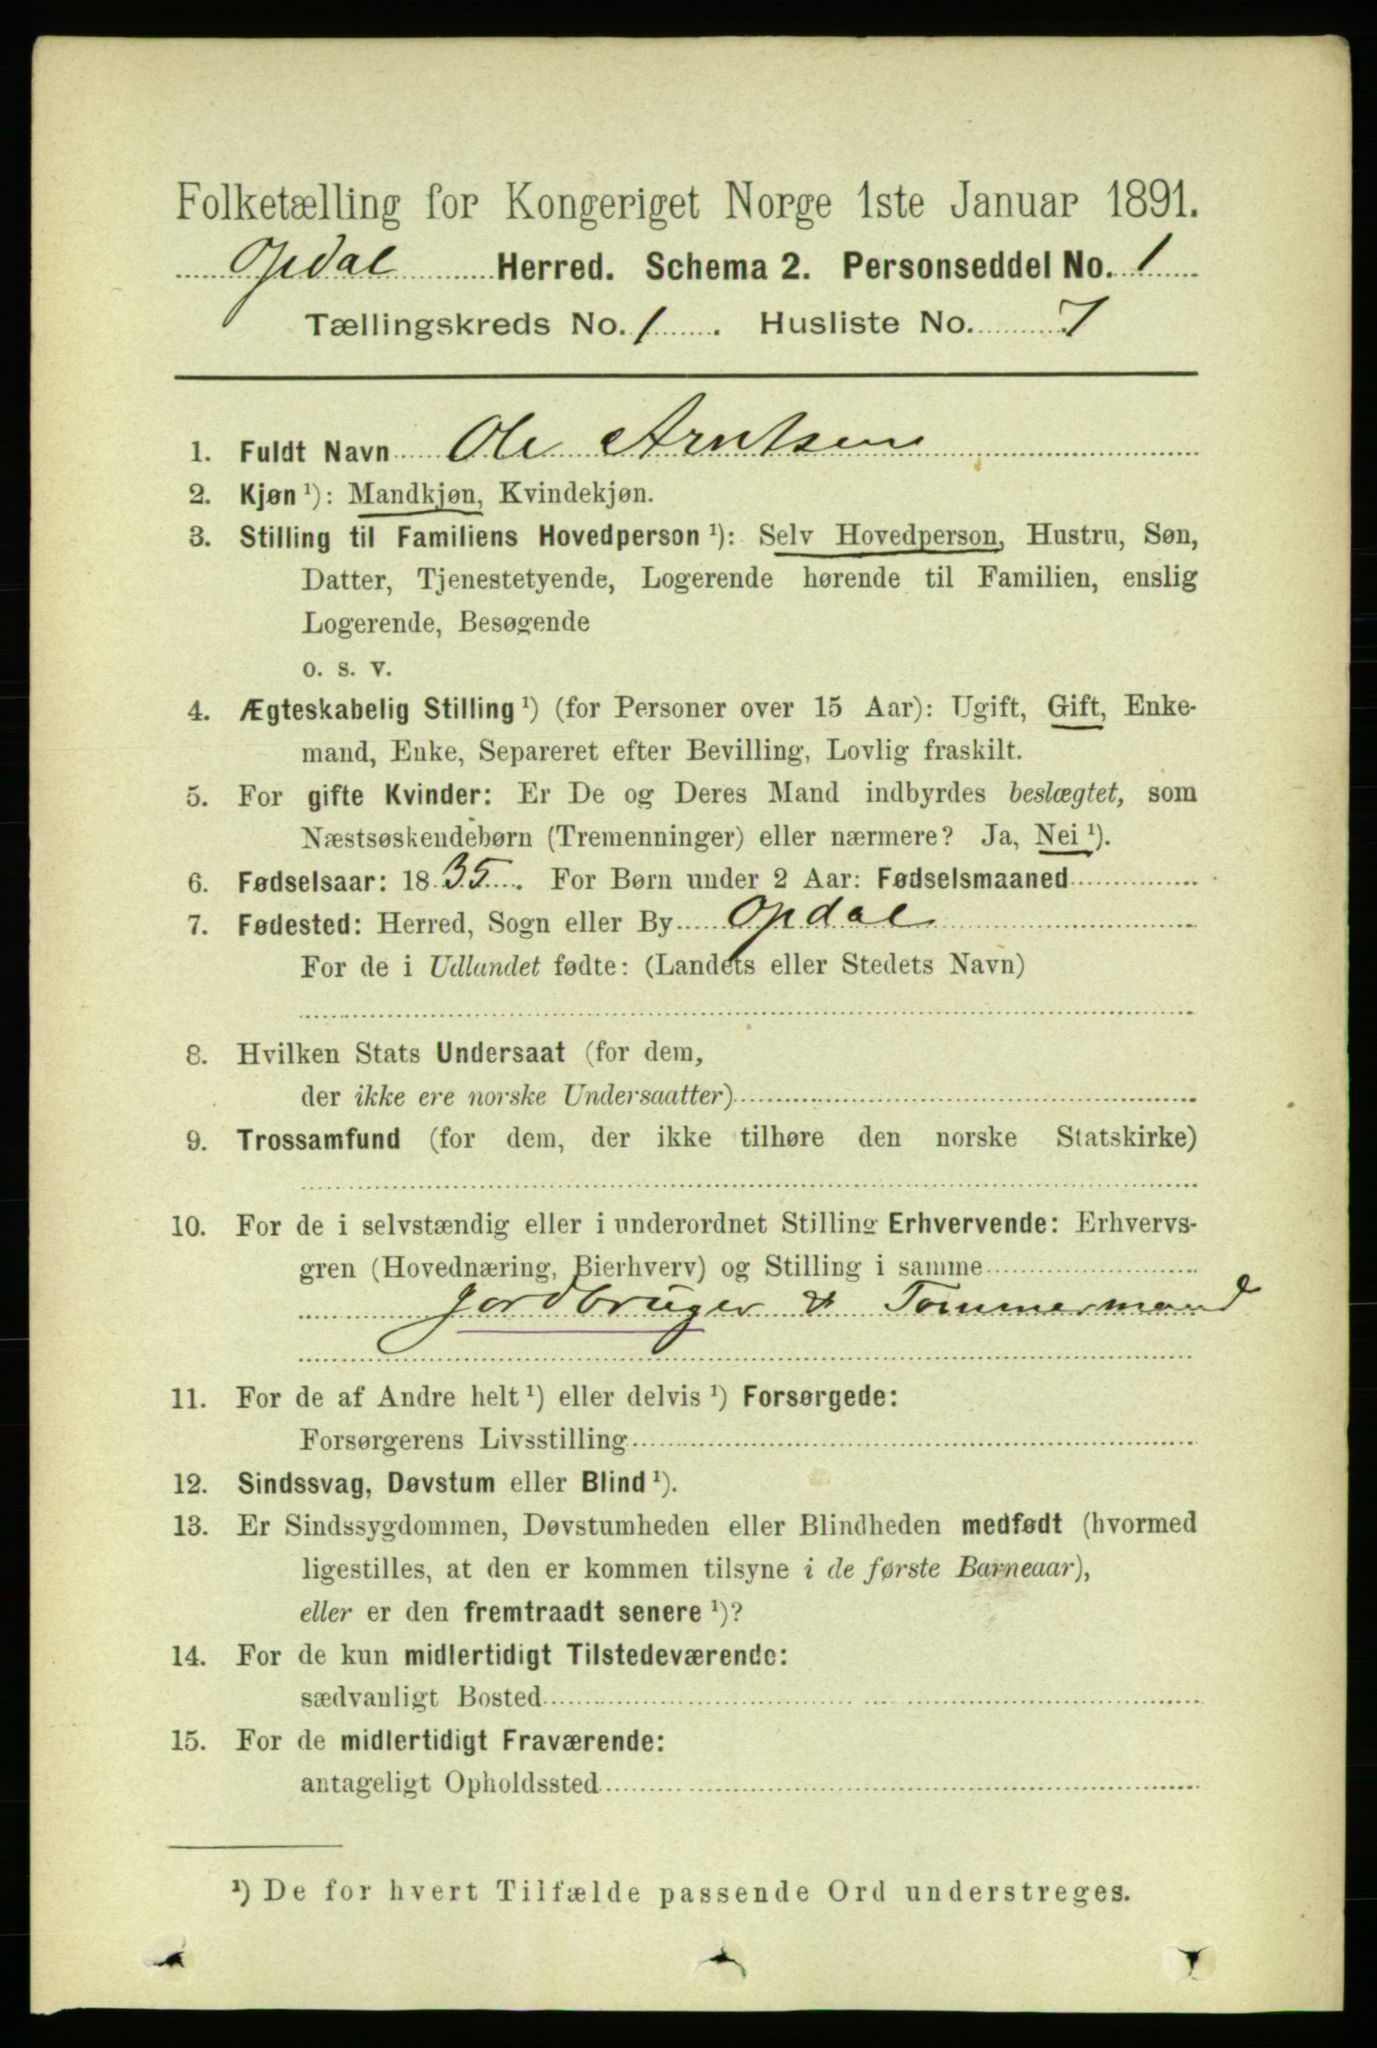 Folketælling for Kongeriget Norge 1ste Januar 1891.
Opdal Herred. Schema 2. Personseddel No. 1
Tællingskreds No. 1. Husliste No. 7
1. Fuldt Navn Ole Arntsen
2. Kjøn ¹): Mandkjøn, Kvindekjøn.
3. Stilling til Familiens Hovedperson ¹): Selv Hovedperson, Hustru, Søn,
Datter, Tjenestetyende, Logerende hørende til Familien, enslig
Logerende, Besøgende
o. s. v.
4. Ægteskabelig Stilling ¹) (for Personer over 15 Aar): Ugift, Gift, Enke-
mand, Enke, Separeret efter Bevilling, Lovlig fraskilt.
5. For gifte Kvinder: Er De og Deres Mand indbyrdes beslægtet, som
Næstsøskendebørn (Tremenninger) eller nærmere? Ja, Nei ¹).
6. Fødselsaar: 1835. For Børn under 2 Aar: Fødselsmaaned
7. Fødested: Herred, Sogn eller By Opdal
For de i Udlandet fødte: (Landets eller Stedets Navn)
8. Hvilken Stats Undersaat (for dem,
der ikke ere norske Undersaatter)
9. Trossamfund (for dem, der ikke tilhøre den norske Statskirke)
10. For de i selvstændig eller i underordnet Stilling Erhvervende: Erhvervs-
gren (Hovednæring, Bierhverv) og Stilling i samme
Jordbruger & Tømmermand
11. For de af Andre helt ¹) eller delvis ¹) Forsørgede:
Forsørgerens Livsstilling
12. Sindssvag, Døvstum eller Blind ¹).
13. Er Sindssygdommen, Døvstumheden eller Blindheden medfødt (hvormed
ligestilles, at den er kommen tilsyne i de første Barneaar),
eller er den fremtraadt senere ¹)?
14. For de kun midlertidigt Tilstedeværende:
sædvanligt Bosted
15. For de midlertidigt Fraværende:
antageligt Opholdssted
¹) De for hvert Tilfælde passende Ord understreges.